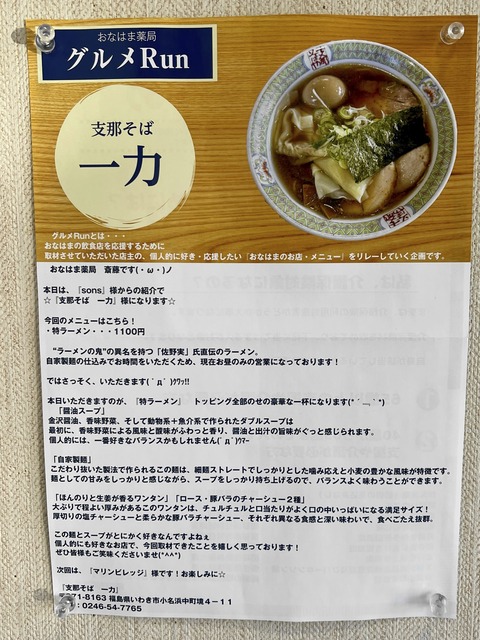 おなはま薬局
グルメRun
支那そば
一力
グルメRunとは・・・
おなはまの飲食店を応援するために
取材させていただいた店主の、個人的に好き・応援したい『おなはまのお店・メニュー』をリレーしていく企画です。
おなはま薬局 斎藤です(・ω・)ノ
本日は、『sons』様からの紹介で
☆『支那そば 一力』様になります☆
今回のメニューはこちら！
・特ラーメン・・・1100円
“ラーメンの鬼”の異名を持つ「佐野実」氏直伝のラーメン。
自家製麺の仕込みでお時間をいただくため、現在お昼のみの営業になっております！
ではさっそく、いただきます(ﾟдﾟ)ｸﾜｯ!!
本日いただきますが、『特ラーメン』 トッピング全部のせの豪華な一杯になります(*´﹃｀*)
「醤油スープ」
金沢醤油、香味野菜、そして動物系＋魚介系で作られたダブルスープは
最初に、香味野菜による風味と酸味がふわっと香り、醤油と出汁の旨味がぐっと感じられます。
個人的には、一番好きなバランスかもしれません(ﾟдﾟ)ｳﾏｰ
「自家製麺」
こだわり抜いた製法で作られるこの麺は、細麺ストレートでしっかりとした噛み応えと小麦の豊かな風味が特徴です。
麺としての甘みをしっかりと感じながら、スープをしっかり持ち上げるので、バランスよく味わうことができます。
「ほんのりと生姜が香るワンタン」「ロース・豚バラのチャーシュー２種」
大ぶりで程よい厚みがあるこのワンタンは、チュルチュルと口当たりがよく口の中いっぱいになる満足サイズ！
厚切りの塩チャーシューと柔らかな豚バラチャーシュー、それぞれ異なる食感と深い味わいで、食べごたえ抜群。
この麺とスープがとにかく好きなんですよねぇ
個人的にも好きなお店で、今回取材できたことを嬉しく思っております！
ぜひ皆様もご笑味くださいませ(*^^*)
次回は、『マリンビレッジ』様です！お楽しみに☆
『支那そば 一力』
971-8163 福島県いわき市小名浜中町境４－１１
：0246-54-7765